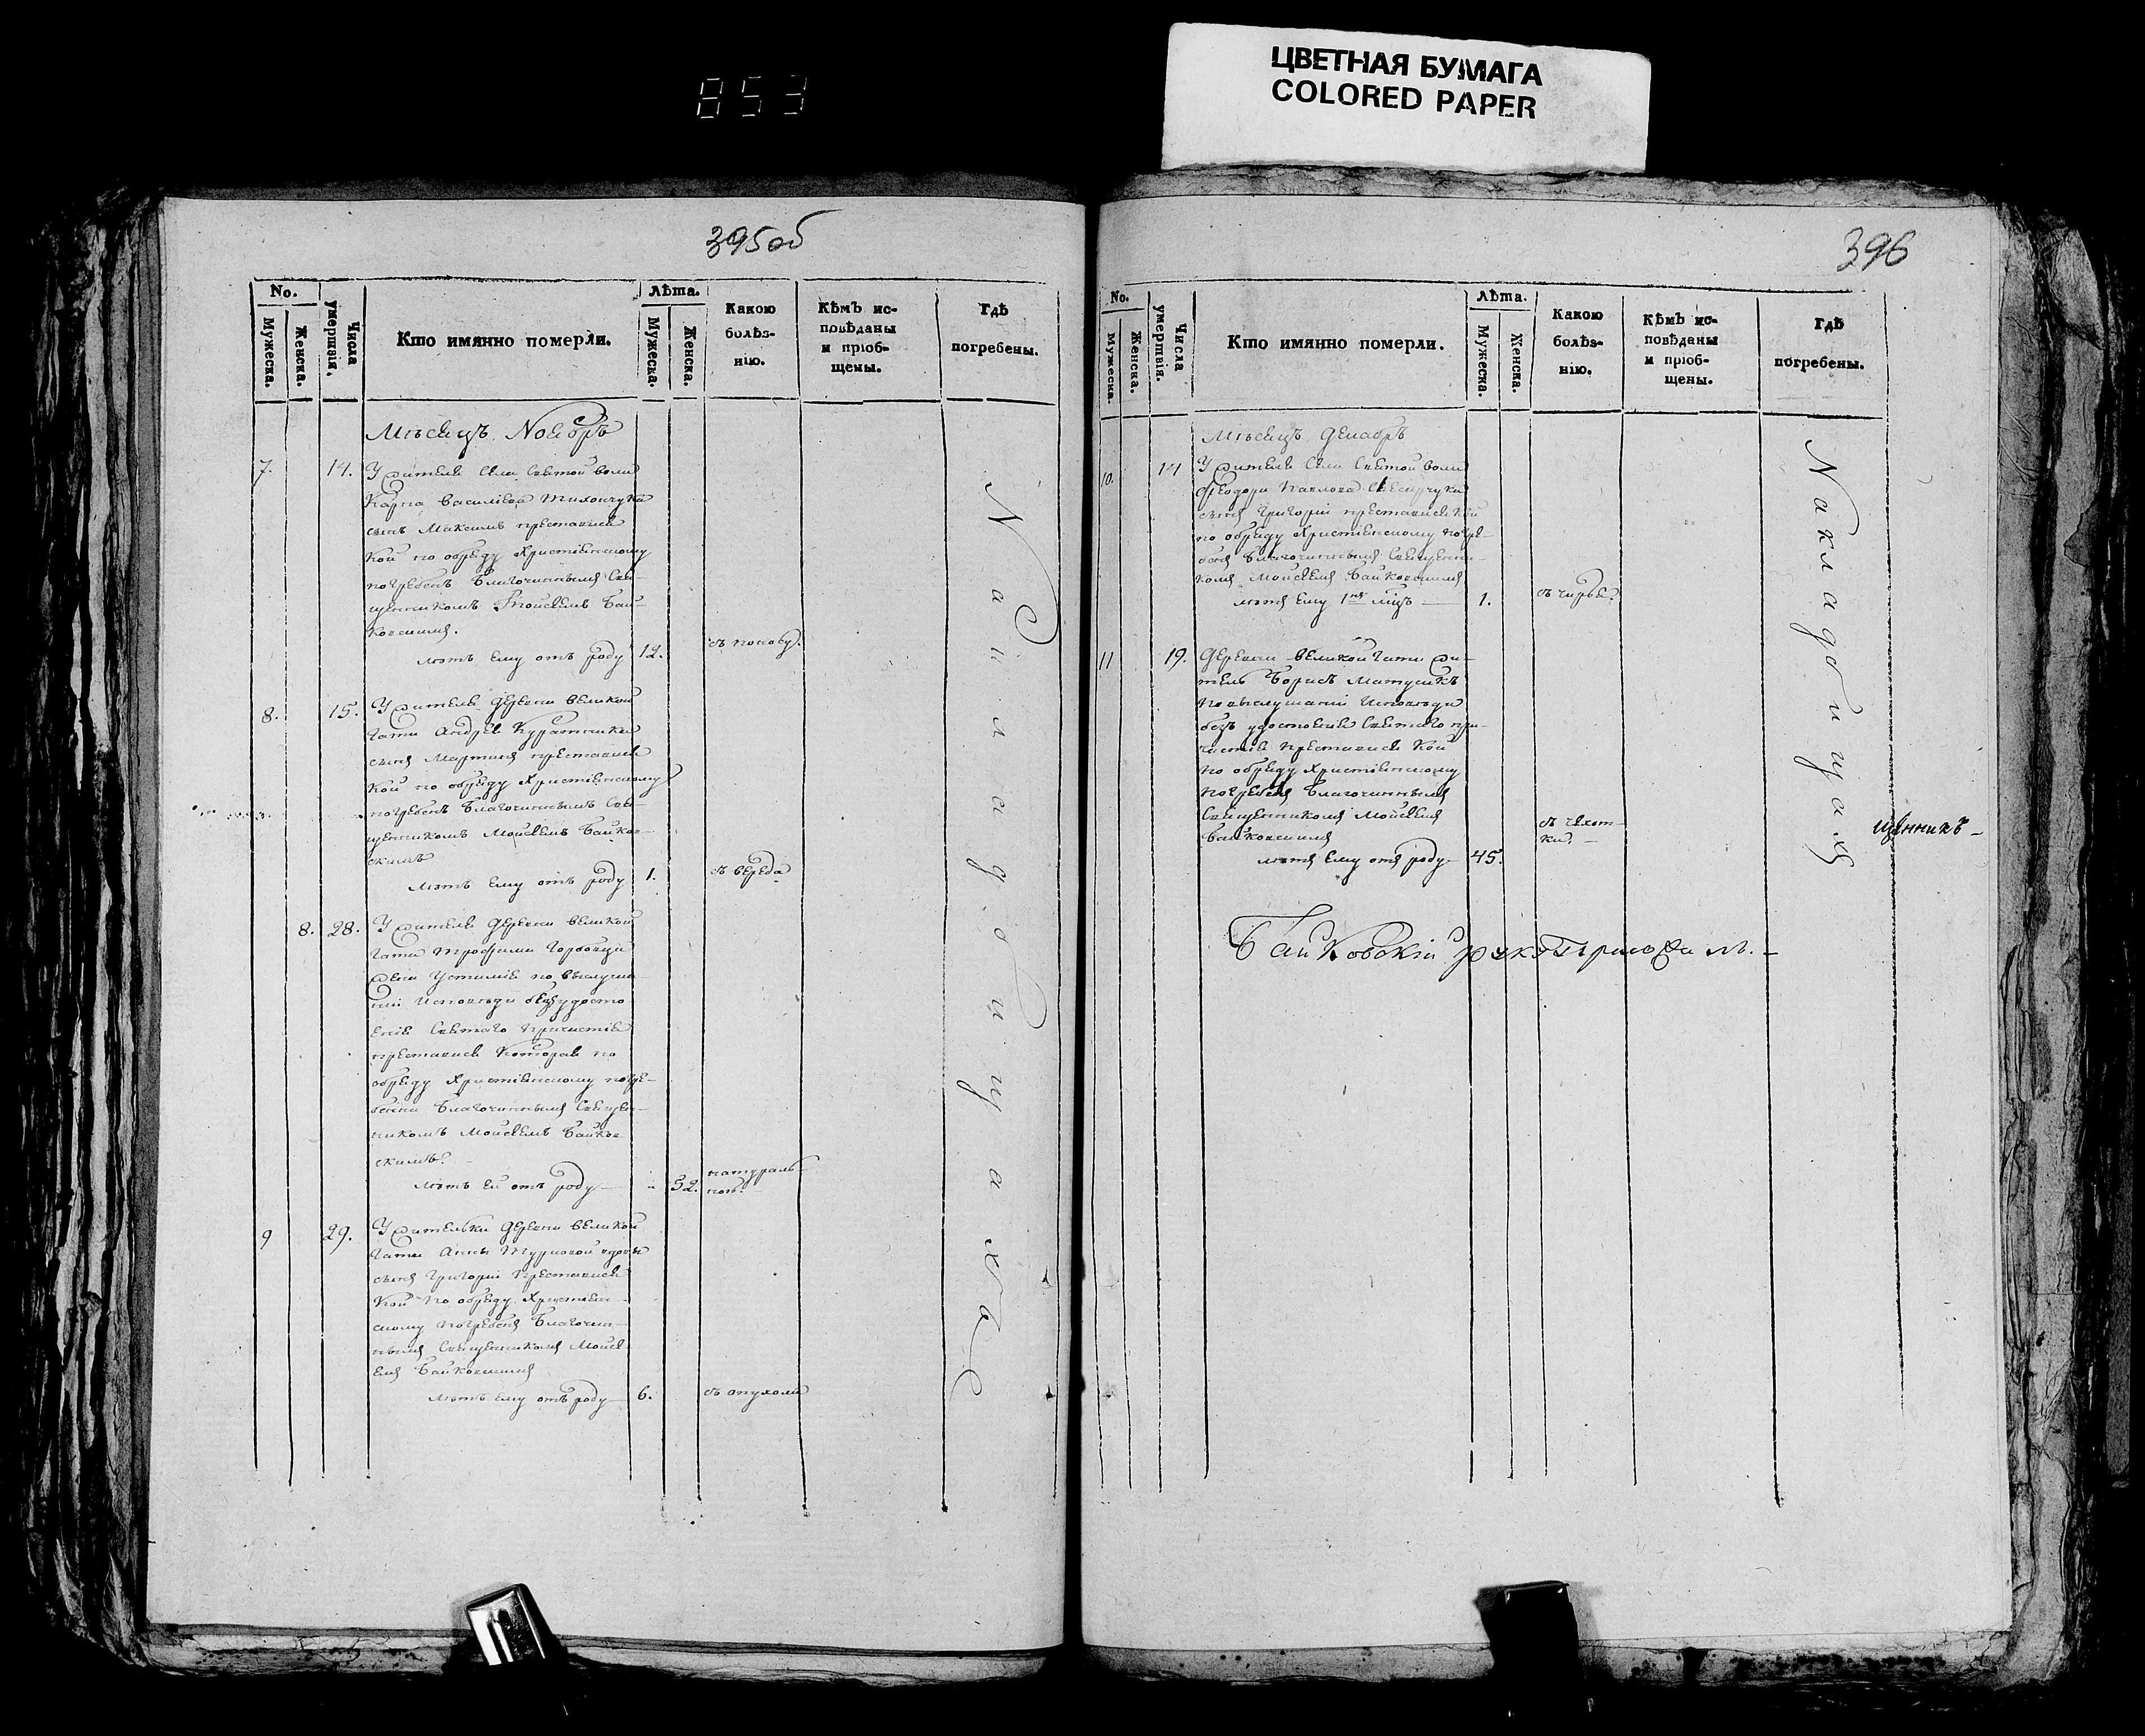 853
ЦВЕТНАЯ БУМАГА
COLORED PAPER
395об
No.
Мужеска.
Женска.
Числа умертвія.
Кто имянно померли.
Лѣта.
Мужеска.
Женска.
Какою
болѣз-
нію.
Кѣмъ ис-
повѣданы
и пріоб-
щены.
Гдѣ
погребены.
Мѣсяцъ Ноябръ
7. 14. У жителя села Святой воли
Карпа Василіева Тихончука
сынъ Максимъ преставися
кой по обряду Христіянскому
погребенъ Благочиннымъ Свя-
щенникомъ Моисеемъ Бай-
ковскимъ.
лѣтъ ему отъ роду 12.
8. 15. У жителя деревни Великой
Гати Андрея
сынъ Мартинъ преставися
кой по обряду Христіянскому
погребенъ Благочиннымъ Свя-
щенникомъ Моисеемъ Байков-
скимъ
лѣтъ ему отъ роду 1. съ вереда
8. 28. У жителя деревни Великой
Гати Трофима
жена Устимія по выслуша-
ніи исповѣди безъ удосто-
енія Святаго Причастія
преставися которая по
обряду Христіянскому погре-
бенна Благочиннымъ Священ-
никомъ Моисеемъ Байков-
скимъ.
лѣтъ ей отъ роду 52. натураль-
ной.
9 29. У жительки деревни Великой
Гати Анны вдовы
сынъ Григорій преставися
кой по обряду Христіян-
скому погребенъ Благочин-
нымъ Священникомъ Моисе-
емъ Байковскимъ
лѣтъ ему отъ роду 6. съ опухоли
На кладбищахъ
396
No.
Мужеска.
Женска.
Числа умертвія.
Кто имянно померли.
Лѣта.
Мужеска.
Женска.
Какою
болѣз-
нію.
Кѣмъ ис-
повѣданы
и пріоб-
щены.
Гдѣ
погребены.
Мѣсяцъ Декабръ
10. 14 У жителя села Святой воли
Феодора Павлова
сынъ Григорій преставися кой
по обряду Христіянскому погре-
бенъ Благочиннымъ Священни-
комъ Моисеемъ Байковскимъ
лѣтъ ему 1. съ
11 19. Деревни Великой Гати жи-
тель Борисъ Матусикъ
по выслушаніи исповѣди
безъ удостоенія Святаго при-
частія преставися кой
по обряду Христіянскому
погребенъ Благочиннымъ
Священникомъ Моисеемъ
Байковскимъ
лѣтъ ему отъ роду 45. съ чахот-
ки.
На кладбищахъ
щенникъ
Байковскій руку приложилъ.